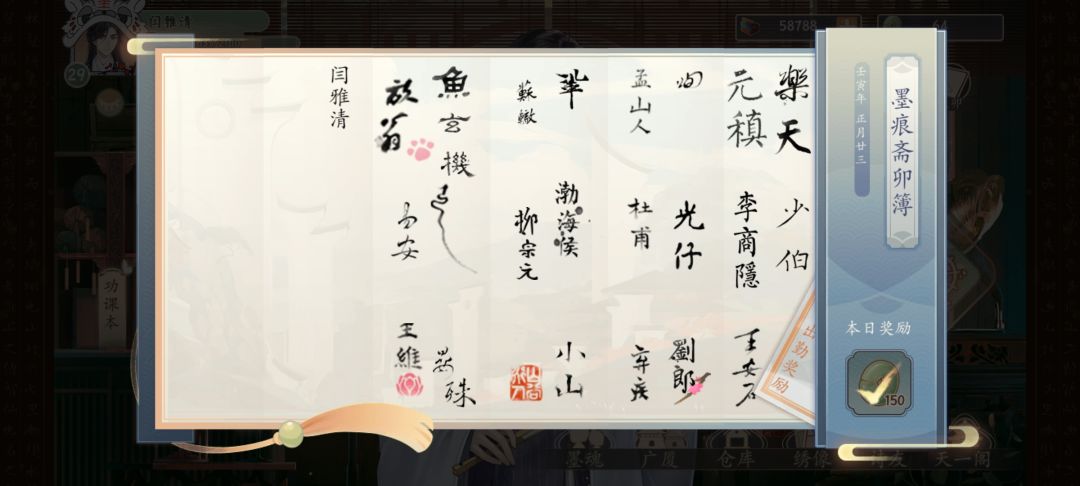 闫雅清
29
58788
64
墨痕斋卯簿
壬寅年 正月廿三
本日奖励
150
出勤奖励
樂天
少伯
元稹
李商隱
王安石
光仔
劉郎
孟山人
杜甫
弃疾
鞏
渤海侯
小山
蘇轍
柳宗元
魚玄機
殊
放翁
易安
王維
闫雅清
功课本
墨魂
广厦
仓库
绣像
诗友
天一阁